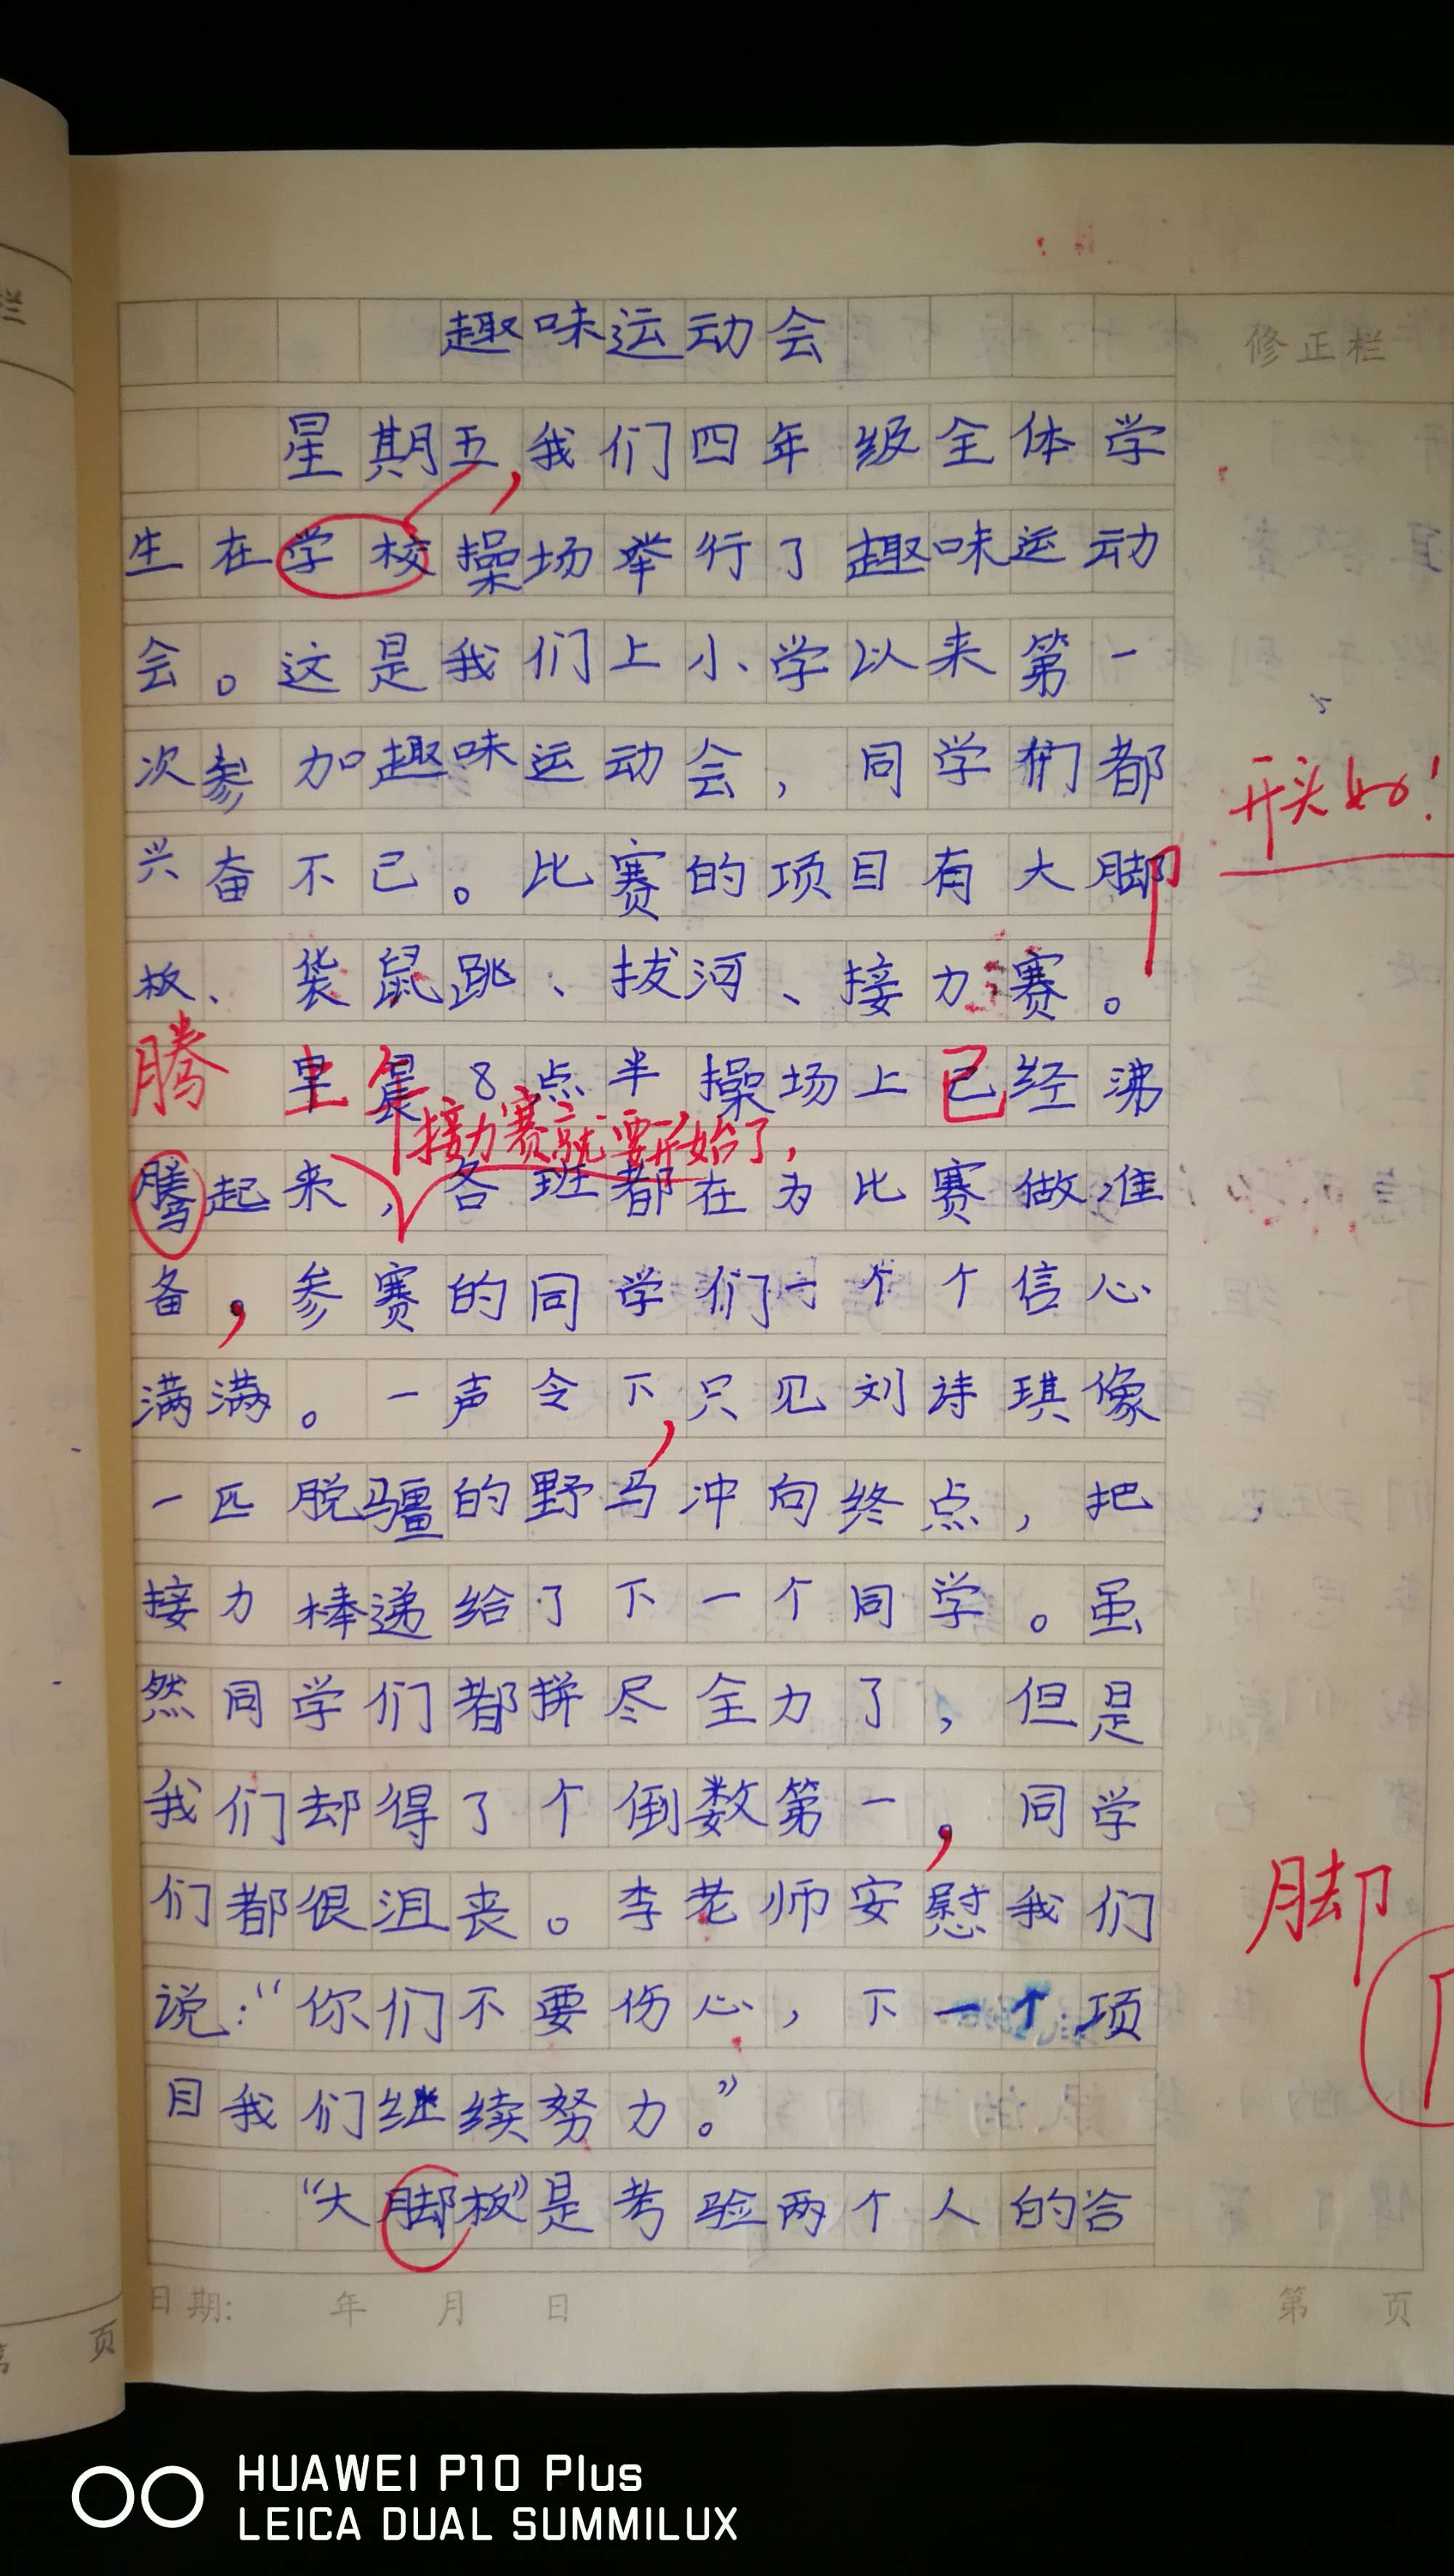 趣味运动会
修正栏
星期五,我们四年级全体学
生在学校操场举行了趣味运动
会。这是我们上小学以来第一
次参加趣味运动会,同学们都
开头好!
兴奋不已。比赛的项目有大脚
板、袋鼠跳、拔河、接力赛。
腾
早晨8点半操场上已经沸
接力赛就要开始了,
腾起来,各班都在为比赛做准
备,参赛的同学们一个个信心
满满。一声令下,只见刘诗琪像
一匹脱疆的野马冲向终点,把
接力棒递给了下一个同学。虽
然同学们都拼尽全力了,但是
我们却得了个倒数第一,同学
们都很沮丧。李老师安慰我们
脚
说:“你们不要伤心,下一个项
目我们继续努力。”
“大脚板”是考验两个人的合
日期: 年 月 日
第 页
栏
页
HUAWEI P10 Plus
LEICA DUAL SUMMILUX